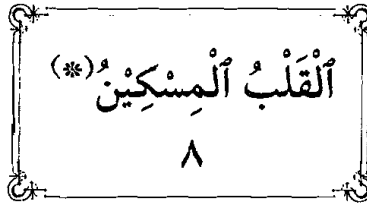 ٱلْقَلْبُ ٱلْمِسْكِيْنُ(*)
٨